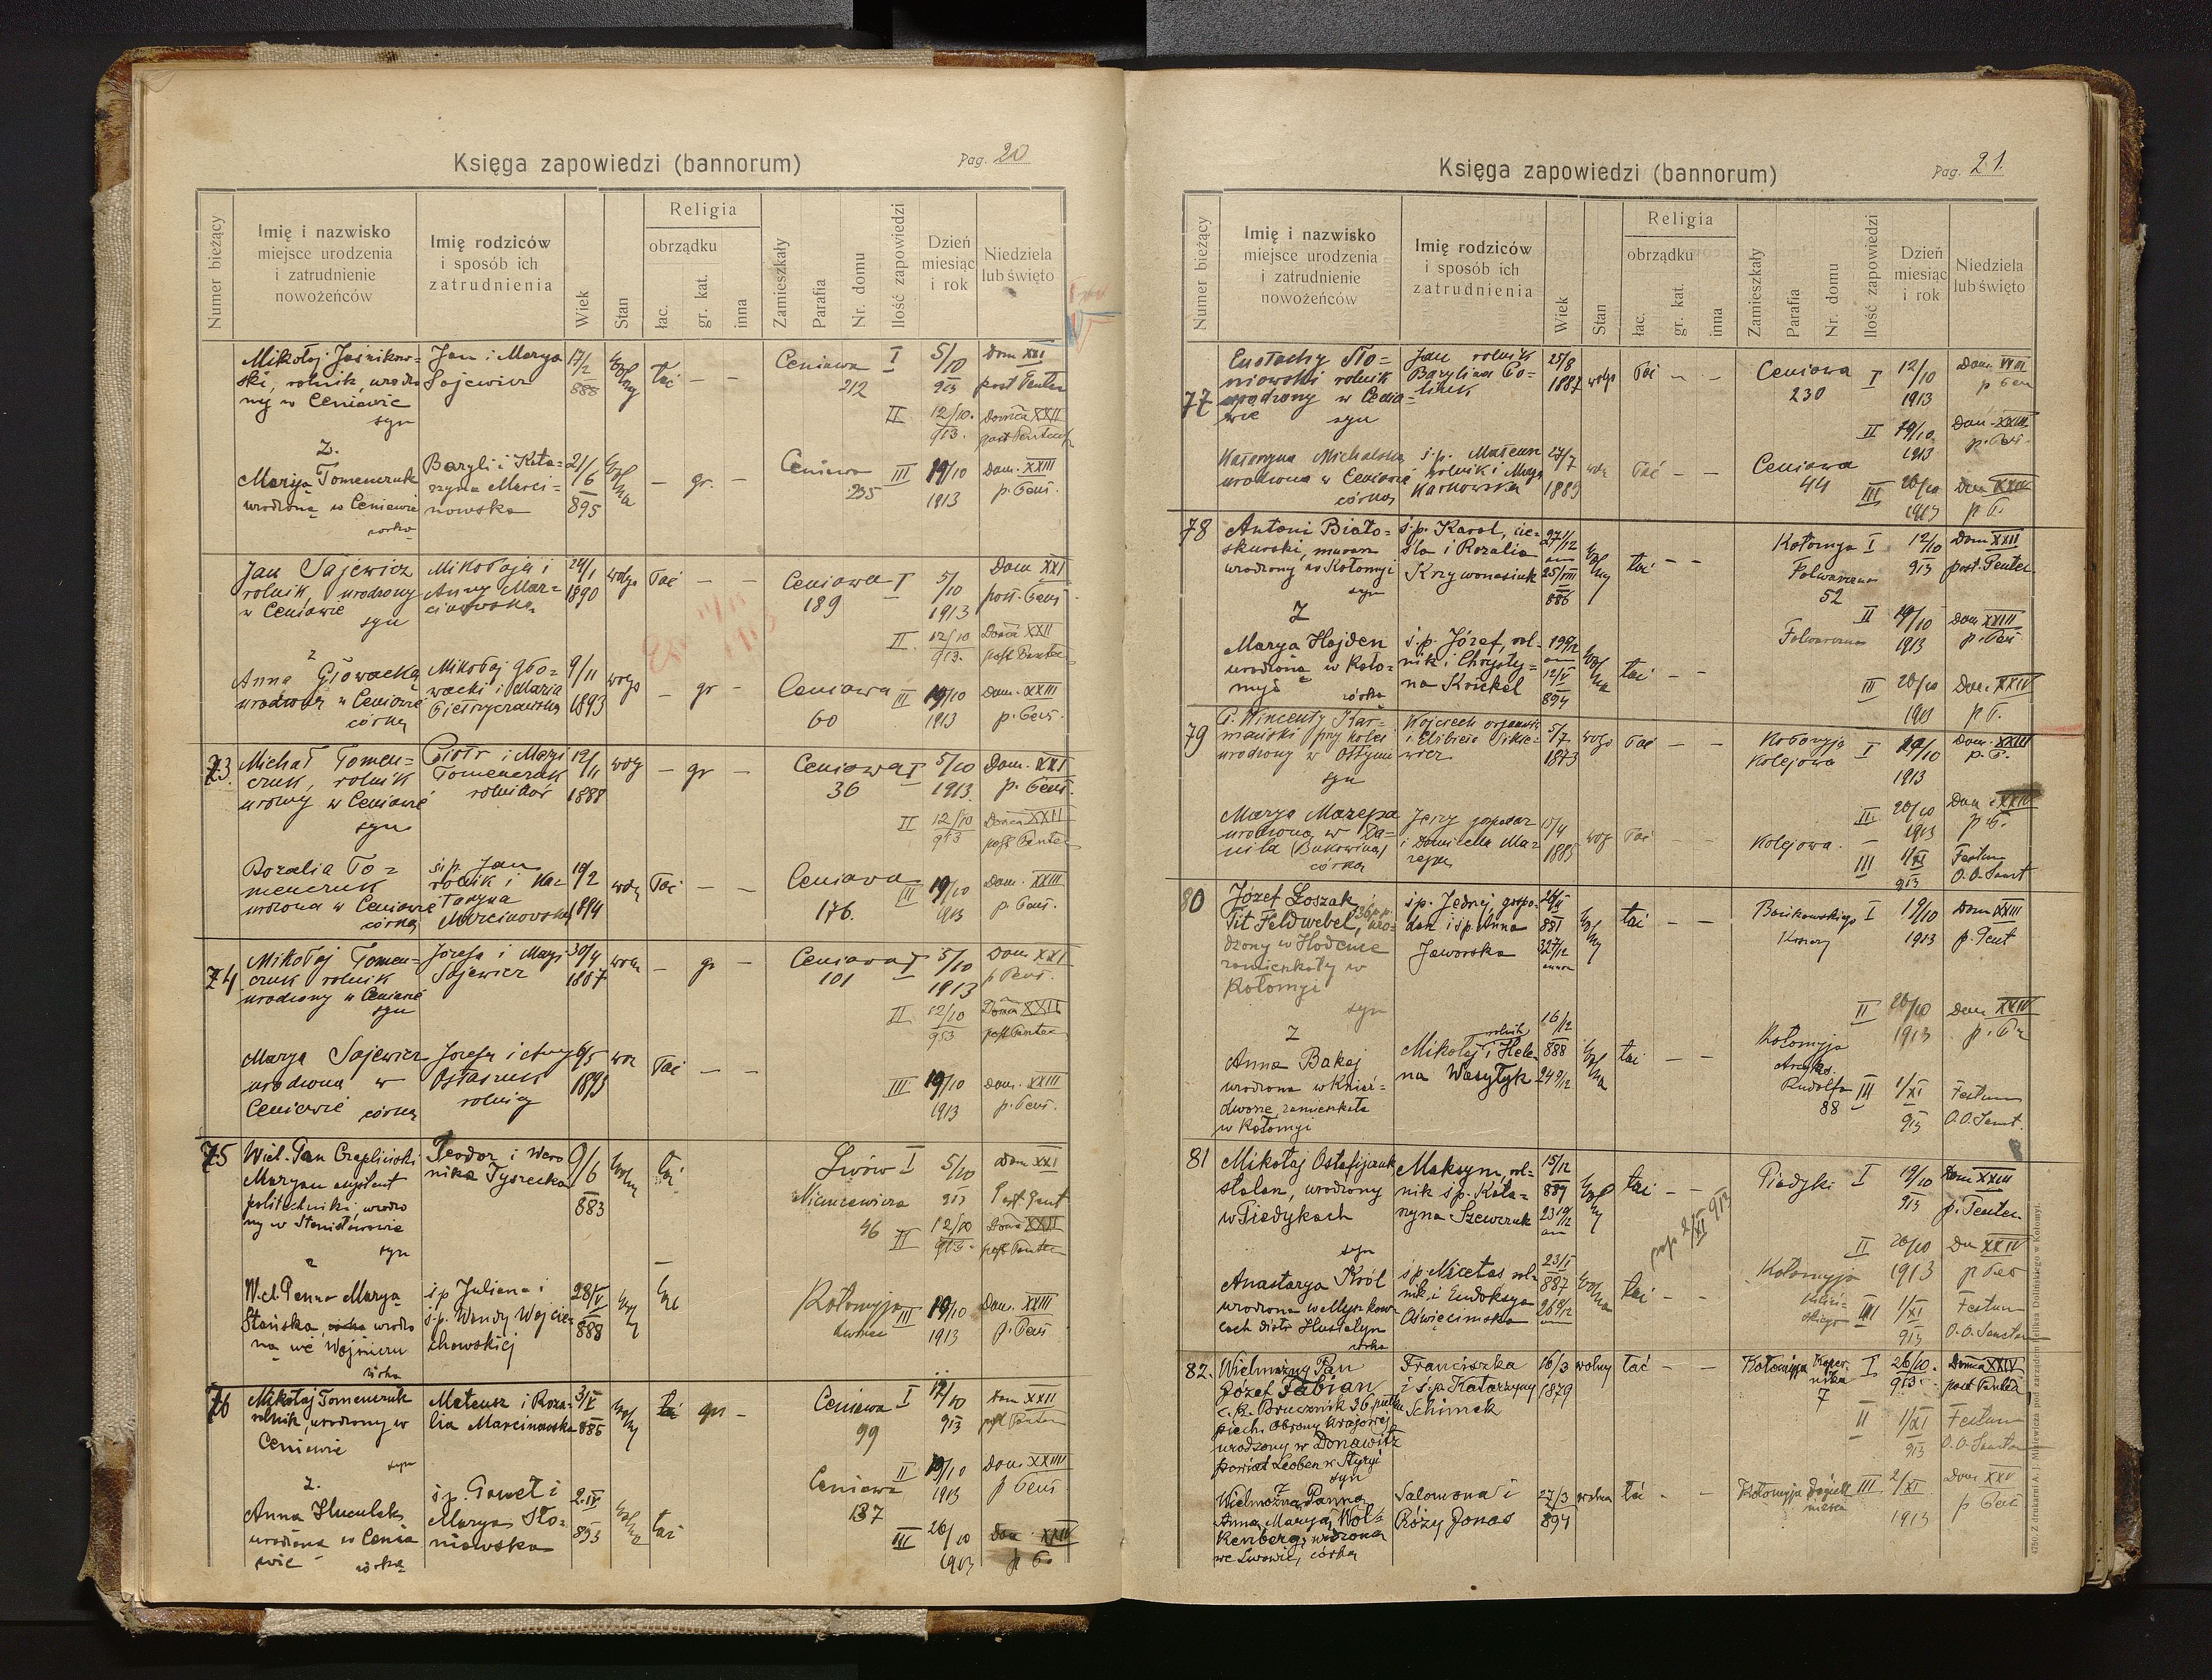 Księga zapowiedzi (bannorum)
Pag. 20
Numer bieżący
Imię i nazwisko
miejsce urodzenia
i zatrudnienie
nowożeńców
Imię rodziców
i sposób ich
zatrudnienia
Wiek
Stan
Religia
obrządku
łac.
gr. kat.
inna
Zamieszkały
Parafia
Nr. domu
Ilość zapowiedzi
Dzień
miesiąc
i rok
Niedziela
lub święto
Mikołaj Jaśnikow-
ski, rolnik, urodzo
ny w Ceniawie
syn
Jan i Marya
Sajewicz
17/2
888
łać — —
Ceniawa
212
I 5/10
913
Dom XXI
post Penten
II 12/10.
913.
Domca XXII
post Pentecs
Z.
Marya Tomenczuk
urodzona w Ceniawie
córka
Bazyli i Kata-
rzyna Marci-
nowska
21/6
895
— gr. —
Ceniawa
235
III 19/10
1913
Dom. XXIII
p. Pent.
Jan Sajewicz
rolnik, urodzony
w Ceniawie
syn
Mikołaja i
Anny Mar-
cinowska
24/1
1890
łać — —
Ceniawa
189
I 5/10
1913
Dom XXI
post. Pent.
II 12/10
913.
Domca XXII
post Penten
Anna Głowacka
urodzona w Ceniawie
córka
Mikołaj Gło-
wacki i Maria
Pietryczawska
9/11
1893
— gr —
Ceniawa
60
III 19/10
1913
Dom. XXIII
p. Pent.
73.
Michał Tomen-
czuk, rolnik
urodzony w Ceniawie
syn
Piotr i Maryi
Tomenczuk
rolników
12/11
1888
— gr —
Ceniawa
36
I 5/10
1913
Dom. XXI
p. Pent.
II 12/10
913
Domca XXII
post Penten
Rozalia To-
menczuk
urodzona w Ceniawie
córka
ś.p. Jan
rolnik i Ka-
taryna
Marcinowska
19/2
1894
łać — —
Ceniawa
176.
III 19/10
1913
Dom. XXIII
p. Pent.
74
Mikołaj Tomen-
czuk rolnik
urodzony w Ceniawie
syn
Józefa i Maryi
Sajewicz
30/4
1887
— gr —
Ceniawa
101
I 5/10
1913
Dom XXI
p Pent.
II 12/10
913
Domca XXII
post Penten
Marya Sajewicz
urodzona w
Ceniawie córka
Józefa i
Ostaszuk
rolnicy
6/5
1893
łać — —
III 19/10
1913
Dom. XXIII
p. Pent.
75
Wiel. Pan Czapliński
Maryan asystent
politechniki, urodzo
ny w Stanisławowie
syn
Teodor i Wero
nika Tyszecka
9/6
883
łać
Lwów
Niemcewicza
46
I 5/10
913
Dom XXI
Post Pent
II 12/10
913.
Domca XXII
post Penten
Wiel. Panna Marya
Stańska, urodzo
na we Wojniczu
córka
ś p Juliana i
ś.p. Wandy Wojcie-
chowskiej
28/V
888
Kołomyja
III 19/10
1913
Dom. XXIII
p. Pent
76
Mikołaj Tomenczuk
rolnik, urodzony w
Ceniawie
syn
Mateusz i Roza-
lia Marcinowska
3/V
886
gr. —
Ceniawa
99
I 12/10
913
Dom XXII
post Penten
II 19/10
1913
Dom XXIII
p Pent.
Z.
Anna Huculak
urodzona w Cenia
wie córka
ś.p. Gaweł i
Marya Sło-
niowska
2.IV
893
łać
Ceniawa
137
III 26/10
1913
Dom. XXIV
p Pe.
Księga zapowiedzi (bannorum)
Pag. 21.
Numer bieżący
Imię i nazwisko
miejsce urodzenia
i zatrudnienie
nowożeńców
Imię rodziców
i sposób ich
zatrudnienia
Wiek
Stan
Religia
obrządku
łac.
gr. kat.
inna
Zamieszkały
Parafia
Nr. domu
Ilość zapowiedzi
Dzień
miesiąc
i rok
Niedziela
lub święto
77
Eustachy Sło-
niowski rolnik
urodzony w Cenia-
wie syn
Jan rolnik
Bazylina Po-
25/8
1887
łać — —
Ceniawa
230
I 12/10
1913
p Pen
II 19/10
1913
Dom. XXIII
p. Pent.
Katarzyna Michalska
urodzona w Ceniawie
córka
ś.p. Mateusz
rolnik i Marya
Karkowska
27/7
1889
łać — —
Ceniawa
44
III 26/10
1913
Dom XXIV
p P.
78
Antoni Biało-
skurski, murarz
urodzony w Kołomyi
syn
ś.p. Karol, cie-
śla i Rozalia
Krzywonasiuk
25/VIII
886
łać — —
Kołomyja
Folwarczna
52
I 12/10
913
Dom XXII
post. Penten
II 19/10
1913
Dom XXIII
p. Pent
Z
Marya Hajden
urodzona w Koło-
myi córka
ś.p. Józef, rol-
nik i Chrysty-
na Krickel
12/V
894
łać — —
Folwarczna
III 26/10
1913
Dom. XXIV
p P.
79
P. Wincenty Kar-
mański przy kolei
urodzony w Ottyni
syn
Wojciech organista
i Elżbieta
5/7
1873
łać — —
Kołomyja
Kolejowa
I 19/10
1913
Dom. XXIII
p. P.
II. 26/10
1913
Dom. XXIV
p P.
Marya Mazepa
urodzona w Da-
nila (Bukowina)
córka
Jerzy gospodar
i Domicella Ma-
zepa
1885
łać — —
Kolejowa.
III 1/XI
913
Festum
O.O. Sanct
80
Józef Łoszak
Tit Feldwebel, 36 p.p. uro-
dzony w Hodowie
zamieszkały w
Kołomyi
syn
ś p. Jędrzej, gospo-
darz i ś p. Anna
Jaworska
881
łać — —
I 19/10
1913
Dom XXIII
p. Pent
II 26/10
1913
Dom XXIV
p. Pe
Z
Anna Bakaj
urodzona w Kniaź-
dworze, zamieszkała
w Kołomyi
Mikołaj rolnik i Hele-
na Wasyłyk
16/12
888
łać — —
Kołomyja
Arcyks.
Rudolfa
88
III 1/XI
913
Festum
O.O. Sanct.
81
Mikołaj Ostafijczuk
stolarz, urodzony
w Piadykach
syn
Maksym, rol-
nik ś p. Kata-
rzyna Szewczuk
15/12
889
łać — —
pop. 2/XI 913
Piadyki
I 19/10
913
Dom XXIII
p. Penten
II 26/10
1913
Dom XXIV
p Pen
Anastazya Król
urodzona w Myszkow-
cach distr Husiatyn
córka
ś p. Nicetas rol-
nik, i Eudoksya
Oświęcimska
23/I
887
łać — —
Kołomyja
III 1/XI
913
Festum
O.O. Sanctor
82.
Wielmożny Pan
Józef Fabian
c. k. Porucznik 36 pułku
piech. obrony krajowej
urodzony w Donawitz
powiat Leoben w Styryi
syn
Franciszka
i ś.p. Katarzyny
Schimek
16/3
1879
wolny
łać — —
Kołomyja Koper-
nika
7
I 26/10.
913.
Domca XXIV
post Penten
II 1/XI
913
Festum
O.O. Sanctor
Z
Wielmożna Panna
Anna Marya Wol-
kenberg, urodzona
we Lwowie, córka
Salomona i
Róży Jonas
27/3
894
wolna
łać — —
Kołomyja Jagiell
III 2/XI
1913
Dom XXV
p Pent
4750. Z drukarni A. J. Miziewicza pod zarządem Feliksa Dolińskiego w Kołomyi.